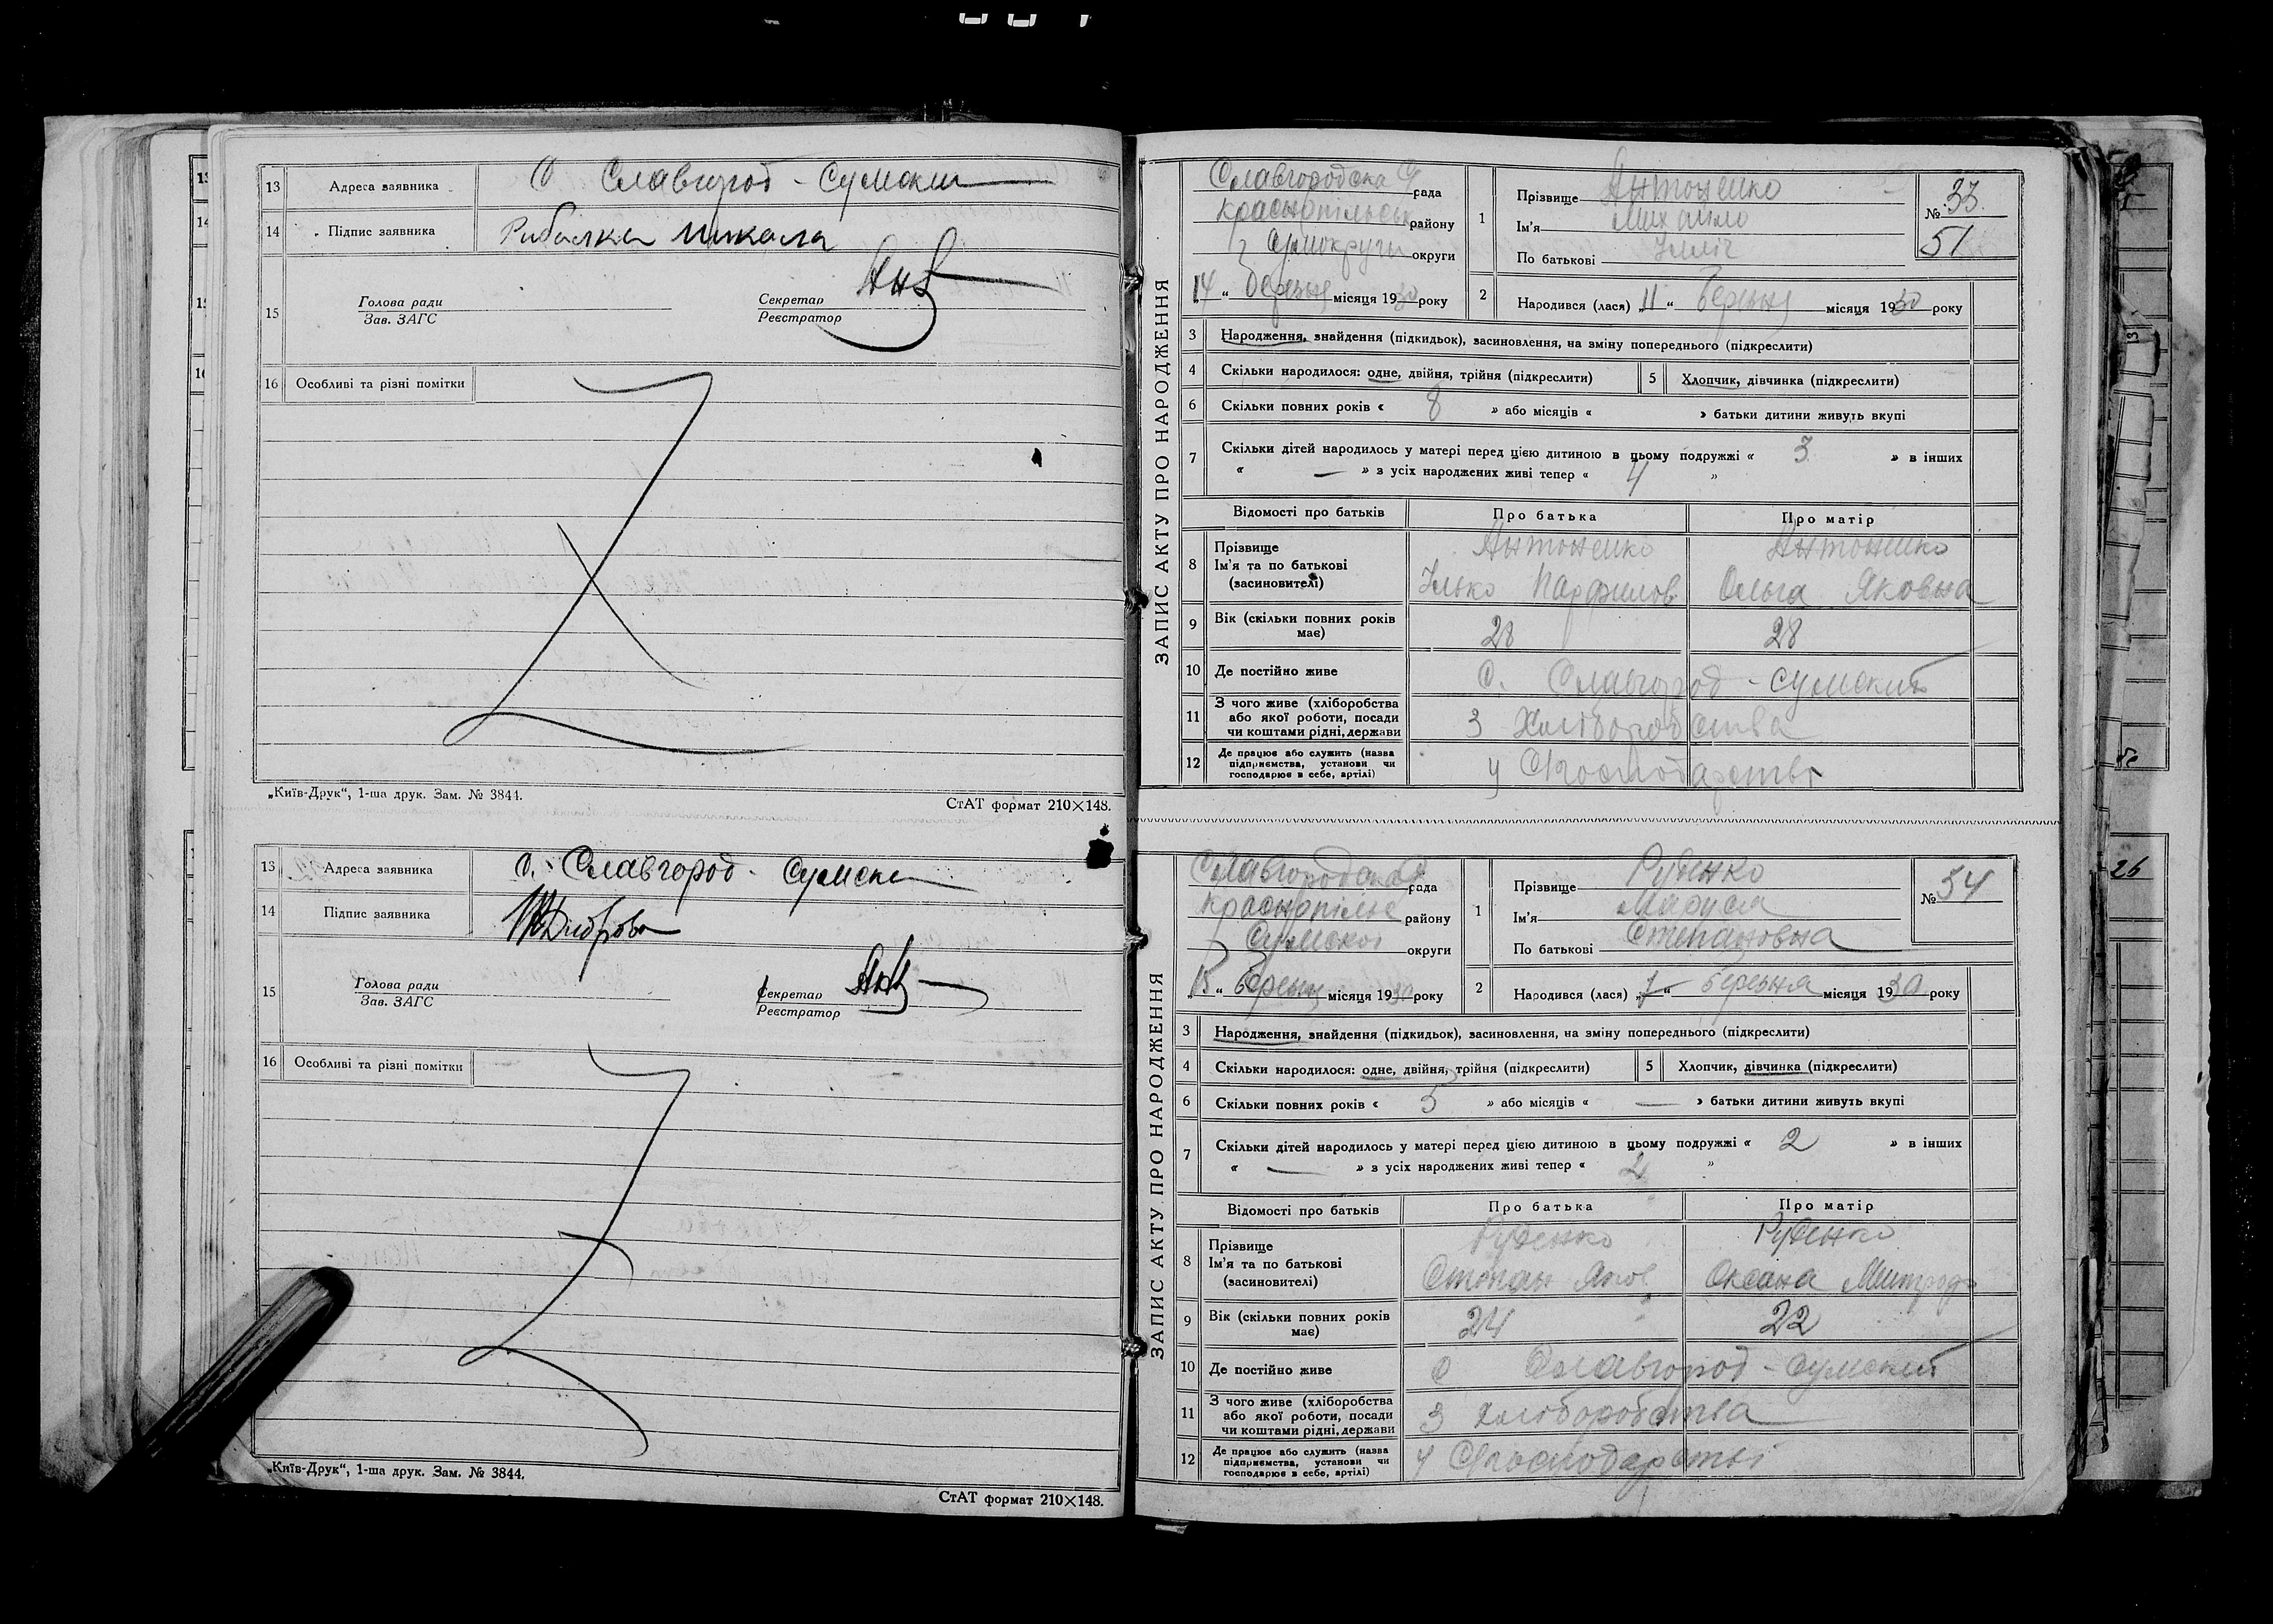 13 Адреса заявника С Славгород - Сумский
14 Підпис заявника Рибалка Микола
15 Голова ради
Зав. ЗАГС
Секретар
Реєстратор
16 Особливі та різні помітки
„Київ-Друк“, 1-ша друк. Зам. № 3844.
СтАТ формат 210×148.
13 Адреса заявника С. Славгород - Сумски
14 Підпис заявника
15 Голова ради
Зав. ЗАГС
Секретар
Реєстратор
16 Особливі та різні помітки
„Київ-Друк“, 1-ша друк. Зам. № 3844.
СтАТ формат 210×148.
ЗАПИС АКТУ ПРО НАРОДЖЕННЯ
Славгородська С рада
Краснопільськ району
Сумокруги округи
14 “ березня місяця 1930 року
1 Прізвище Антоненко
Ім'я Михайло
По батькові Ілліч
№ 33
51
2 Народився (лася) „11 “ березня місяця 1930 року
3 Народження, знайдення (підкидьок), засиновлення, на зміну попереднього (підкреслити)
4 Скільки народилося: одне, двійня, трійня (підкреслити) 5 Хлопчик, дівчинка (підкреслити)
6 Скільки повних років « 8 » або місяців « » батьки дитини живуть вкупі
7 Скільки дітей народилось у матері перед цією дитиною в цьому подружжі « 3 » в інших
« — » з усіх народжених живі тепер « 4 »
Відомості про батьків Про батька Про матір
8 Прізвище Антоненко Антоненко
Ім'я та по батькові
(засиновителі) Ілько Парфилов Ольга Яковна
9 Вік (скільки повних років
має) 28 28
10 Де постійно живе С. Славгород - Сумский
11 З чого живе (хліборобства
або якої роботи, посади
чи коштами рідні, держави З Хліборобства
12 Де працює або служить (назва
підприємства, установи чи
господарює в себе, артілі) у Сгосподарстві
ЗАПИС АКТУ ПРО НАРОДЖЕННЯ
Славгородська С рада
Краснопільс району
Сумської округи
„15 “ березня місяця 1930 року
1 Прізвище Руденко
Ім'я Маруся
По батькові Степановна
№ 54
2 Народився (лася) „7 “ березня місяця 1930 року
3 Народження, знайдення (підкидьок), засиновлення, на зміну попереднього (підкреслити)
4 Скільки народилося: одне, двійня, трійня (підкреслити) 5 Хлопчик, дівчинка (підкреслити)
6 Скільки повних років « 5 » або місяців « — » батьки дитини живуть вкупі
7 Скільки дітей народилось у матері перед цією дитиною в цьому подружжі « 2 » в інших
« — » з усіх народжених живі тепер « 2 »
Відомості про батьків Про батька Про матір
8 Прізвище Руденко Руденко
Ім'я та по батькові
(засиновителі) Степан Яков Оксана
9 Вік (скільки повних років
має) 24 22
10 Де постійно живе С Славгород - Сумский
11 З чого живе (хліборобства
або якої роботи, посади
чи коштами рідні, держави З хліборобства
12 Де працює або служить (назва
підприємства, установи чи
господарює в себе, артілі) у
26